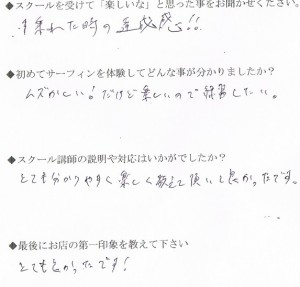 ◆スクールを受けて「楽しいな」と思った事をお聞かせください。
乗れた時の達成感!!
◆初めてサーフィンを体験してどんな事が分かりましたか?
ムズかしい!だけど楽しいので練習したい。
◆スクール講師の説明や対応はいかがでしたか?
とても分かりやすく楽しく教えて頂いて良かったです。
◆最後にお店の第一印象を教えて下さい
とても良かったです!